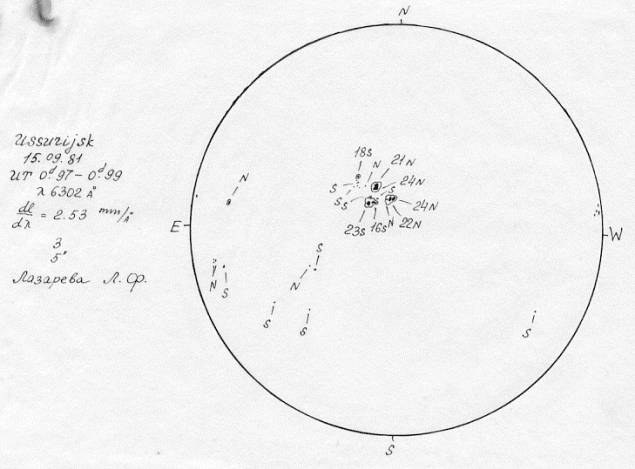 N
Ussurijsk
15.09.81
UT 0ᵈ.97 – 0ᵈ.99
λ 6302 Å
dl/dλ = 2.53 mm/Å
3
5"
Лазарева Л. Ф.
18S N 21N
N S 24N
S S S 24N
E 23S 16S N 22N
W
S
N S N
S S S
S